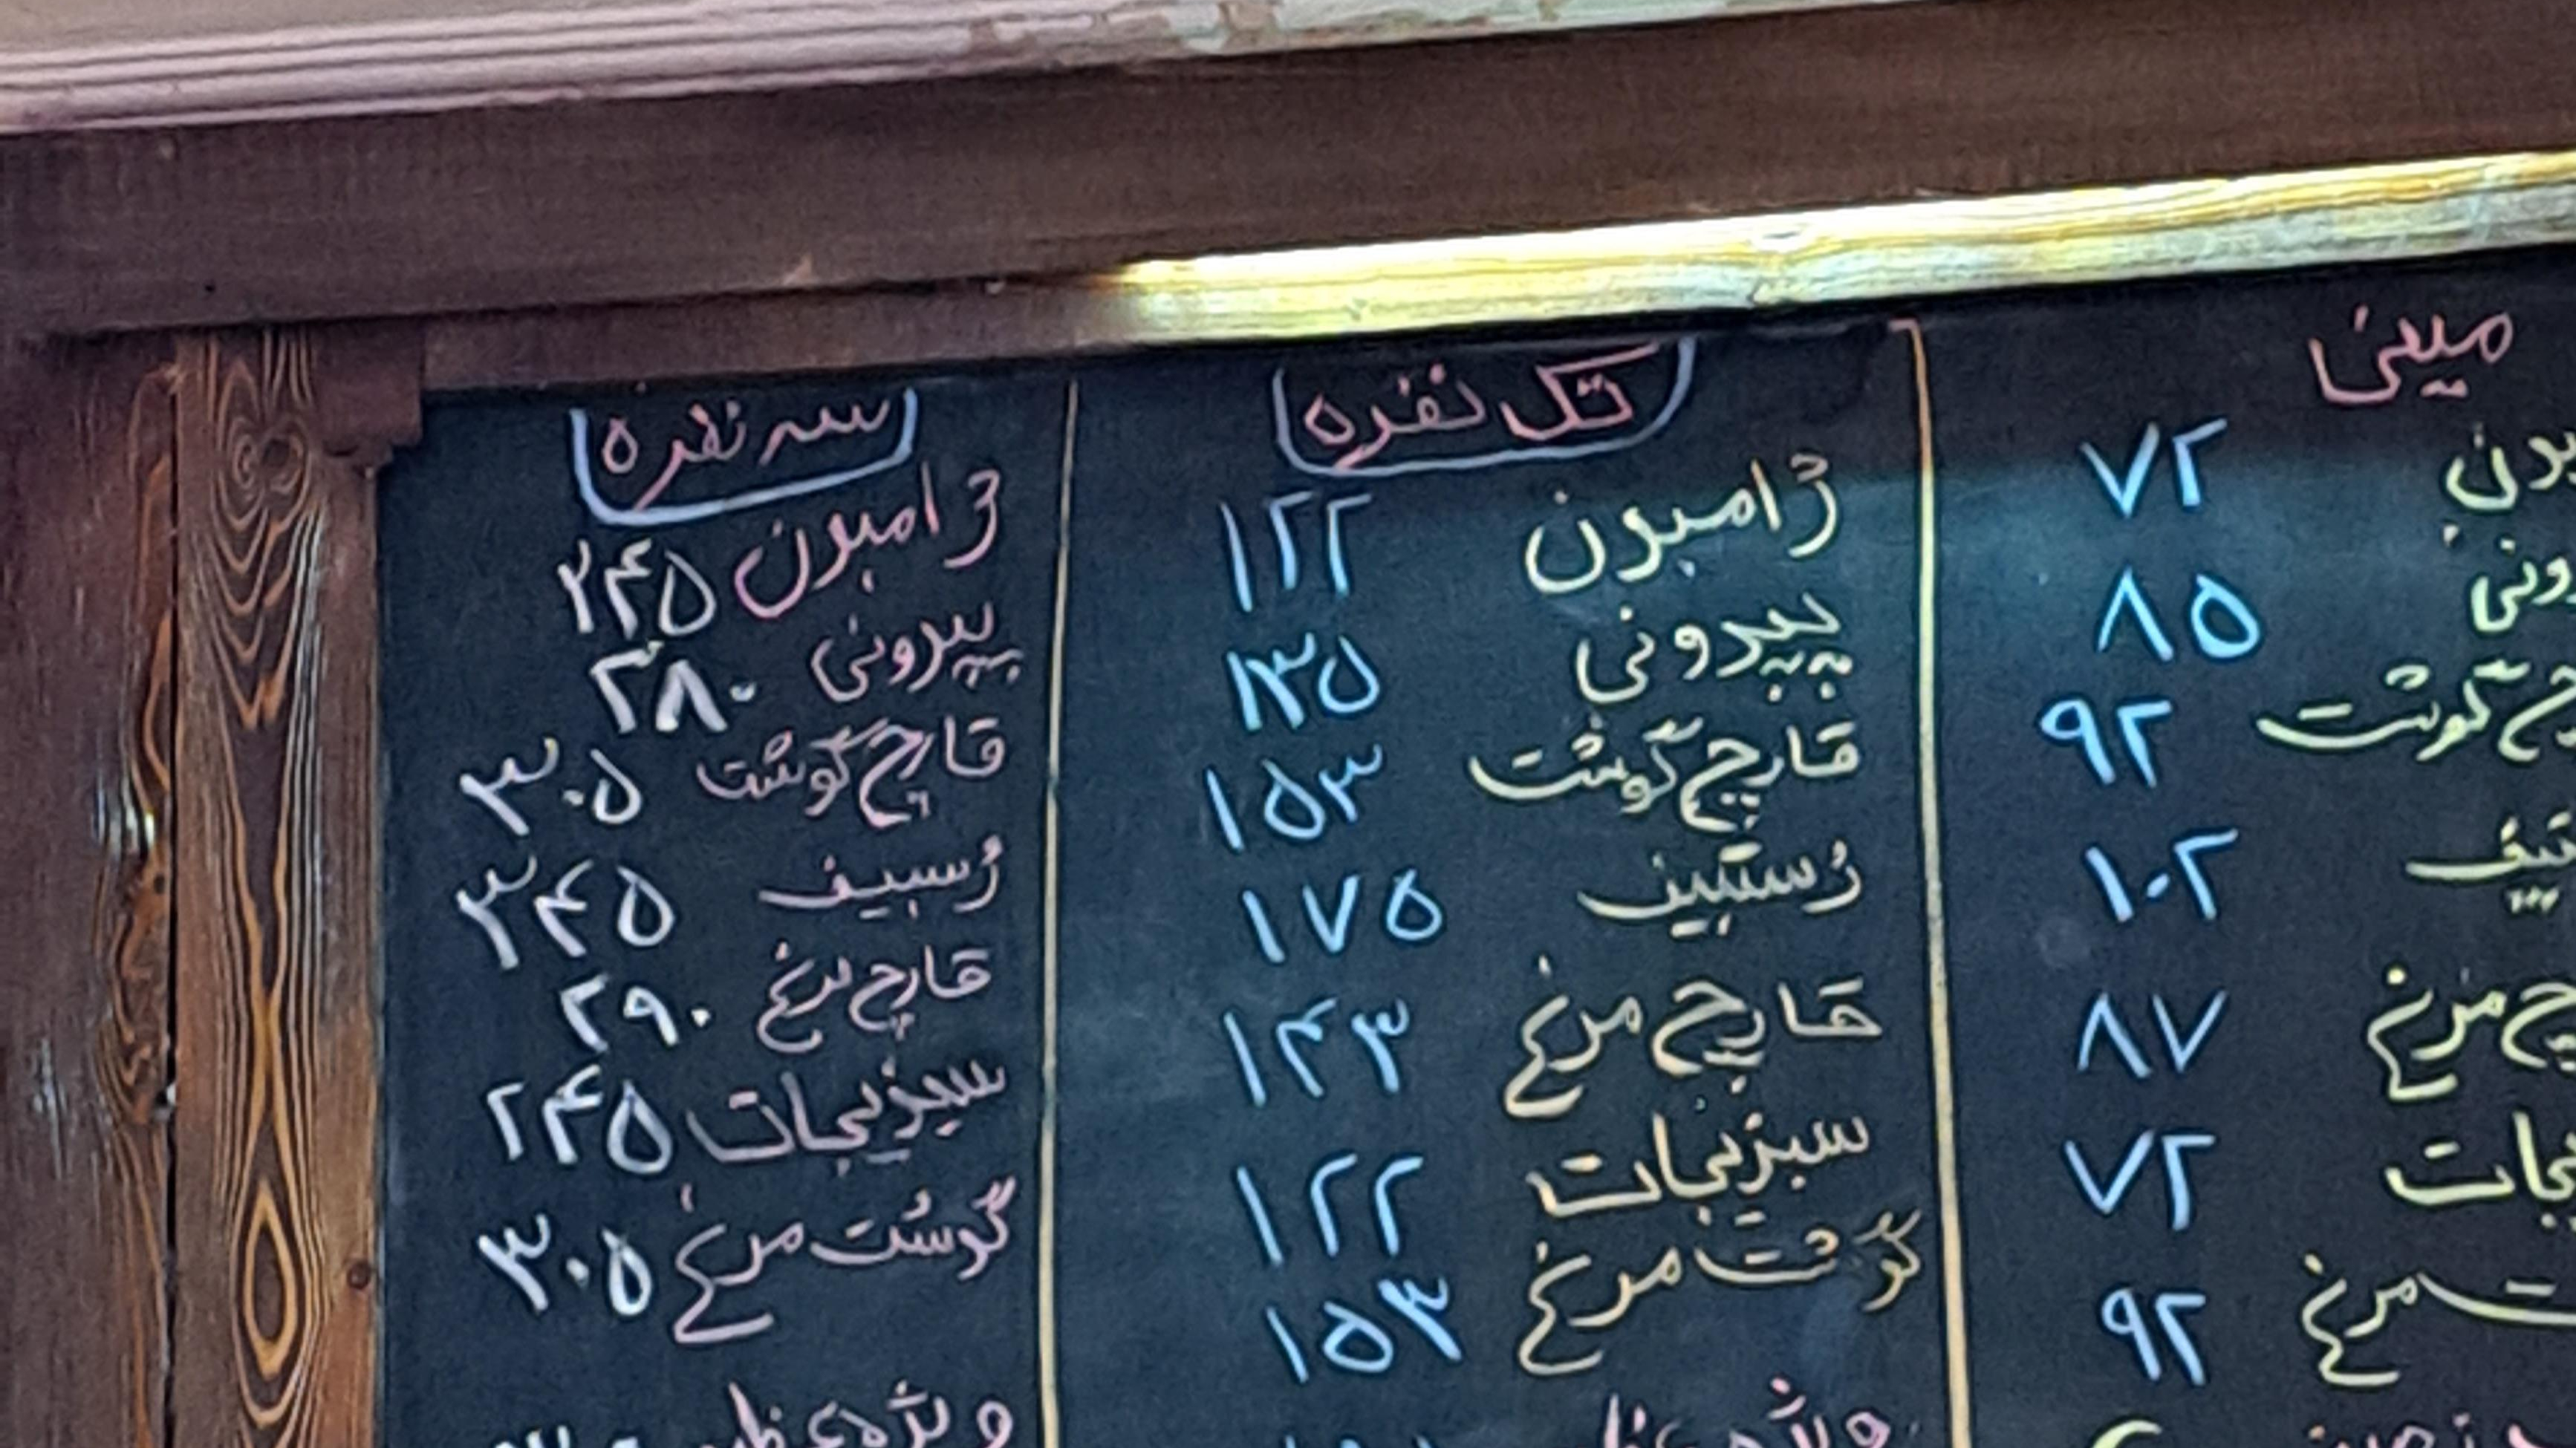 مینی
۷۲
۸۵
گوشت ۹۲
۱۰۲
مرغ ۸۷
۷۲
مرغ ۹۲
تک نفره
ژامبون ۱۲۲
پپرونی ۱۳۵
قارچ گوشت ۱۵۳
رُستبیف ۱۷۵
قارچ مرغ ۱۴۳
سبزیجات ۱۲۲
گوشت مرغ ۱۵۳
سه نفره
ژامبون ۲۴۵
پپرونی ۲۸۰
قارچ گوشت ۳۰۵
رُسبیف ۳۴۵
قارچ مرغ ۲۹۰
سبزیجات ۲۴۵
گوشت مرغ ۳۰۵